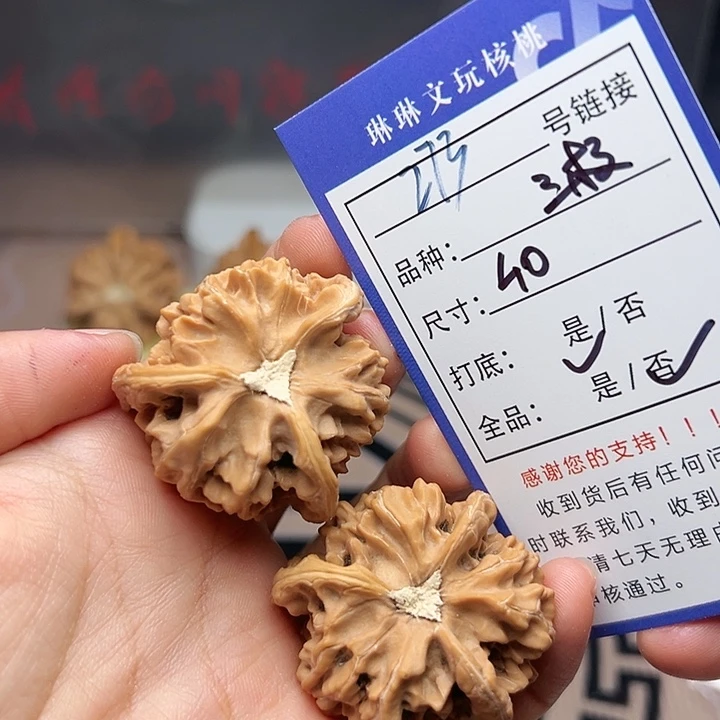 琳琳文玩核桃
273 号链接
品种：三棱
尺寸：40
打底：是/否
全品：是/否
感谢您的支持！！！
收到货后有任何问
时联系我们，收到
请七天无理由
核通过。